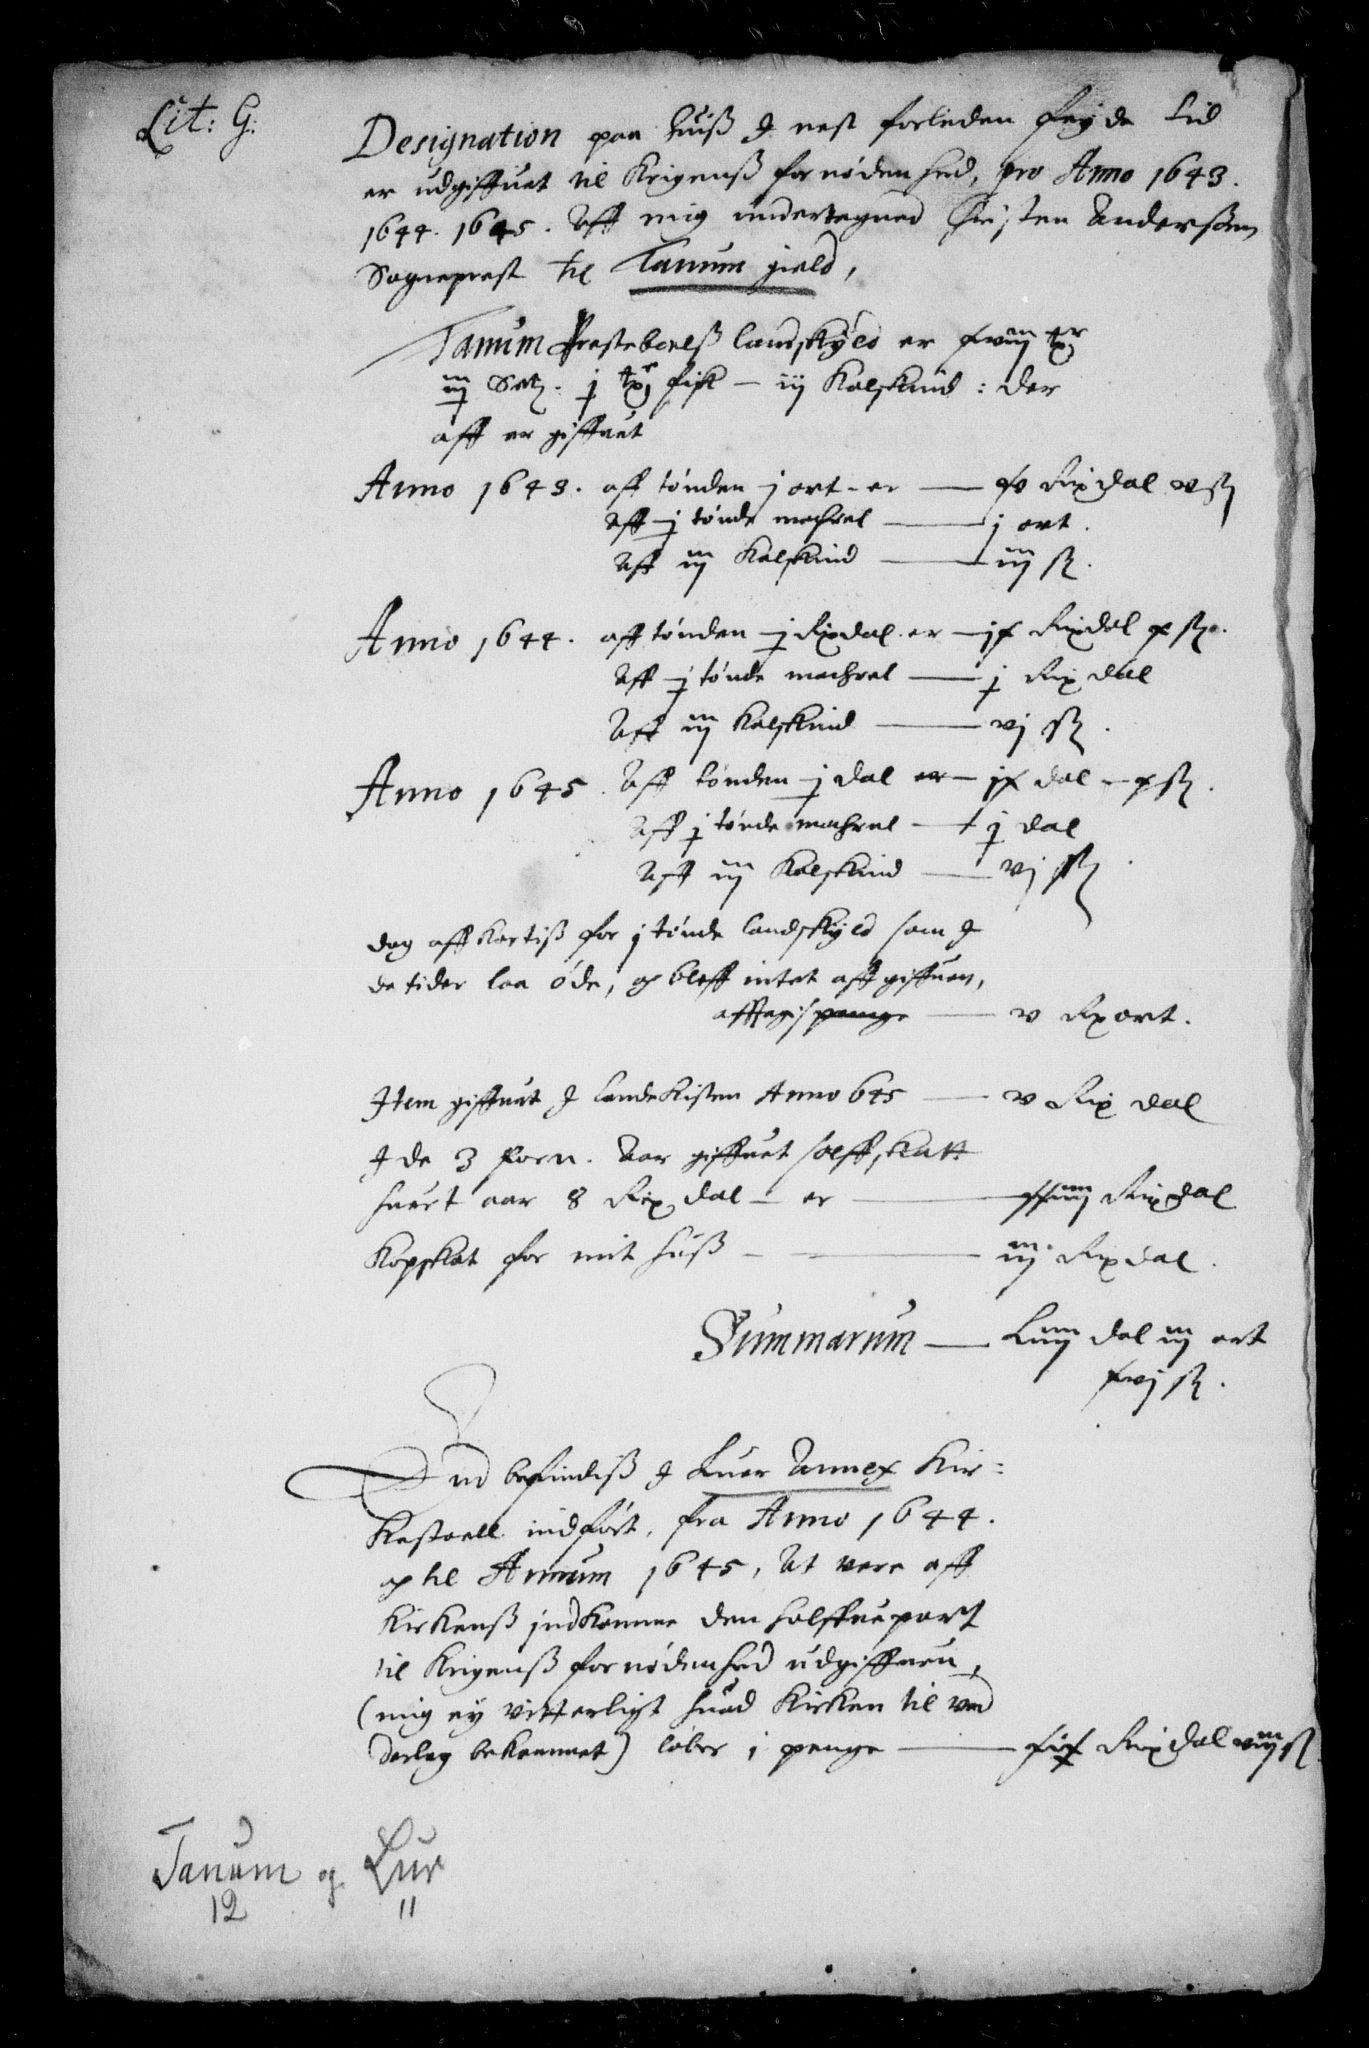 Lit: G:
Designation paa huiß I nest forleden feyde tid
er udgiffuet til Krigenß fornødenhed, pro Anno 1643.
1644. 1645. Aff mig undertegned Christen Anderssøn
Sogneprest til Tanum gield,
Tanum Prestebolß landskyld er
iij Setz. j fisk - iij Kalfskind : der
aff er giffuet
Anno 1643. aff tønden j ort - er — Rixdal v ß
Aff j tønde machrel — j ort.
Aff iij Kalfskind — iij ß.
Anno 1644. aff tønden j Rixdal. er — jx Rixdal x ß.
Aff j tønde machrel — j Rix dal
Aff iij Kalfskind — vj ß.
Anno 1645. Aff tønden j dal er — jx dal - x ß.
Aff j tønde machrel — j dal
Aff iij Kalfskind — vj ß.
dog affkortiß for j tønde landskyld som I
de tider laa øde, og bleff intet aff giffuen,
— v Rx ort.
Item giffuet I landkisten Anno 645 — v Rix dal
I de 3 forn. Aar giffuet sølffskatt
huert aar 8 Rix dal - er — xxiiij Rixdal
Kopskat for mit huß — iij Rixdal.
Summarum — Liiij dal iij ort
xvj ß.
End befindiß I Luer Annex Kir=
kestoell indført, fra Anno 1644.
og til Annum 1645, At vere aff
Kirkenß indkomme den halffue part
til Krigenß fornødenhed udgiffuen,
(mig ey vitterligt huad Kirken til ved
derlag bekommet) løber i penge — Rixdal viij ß
Tanum og Lur
12 11